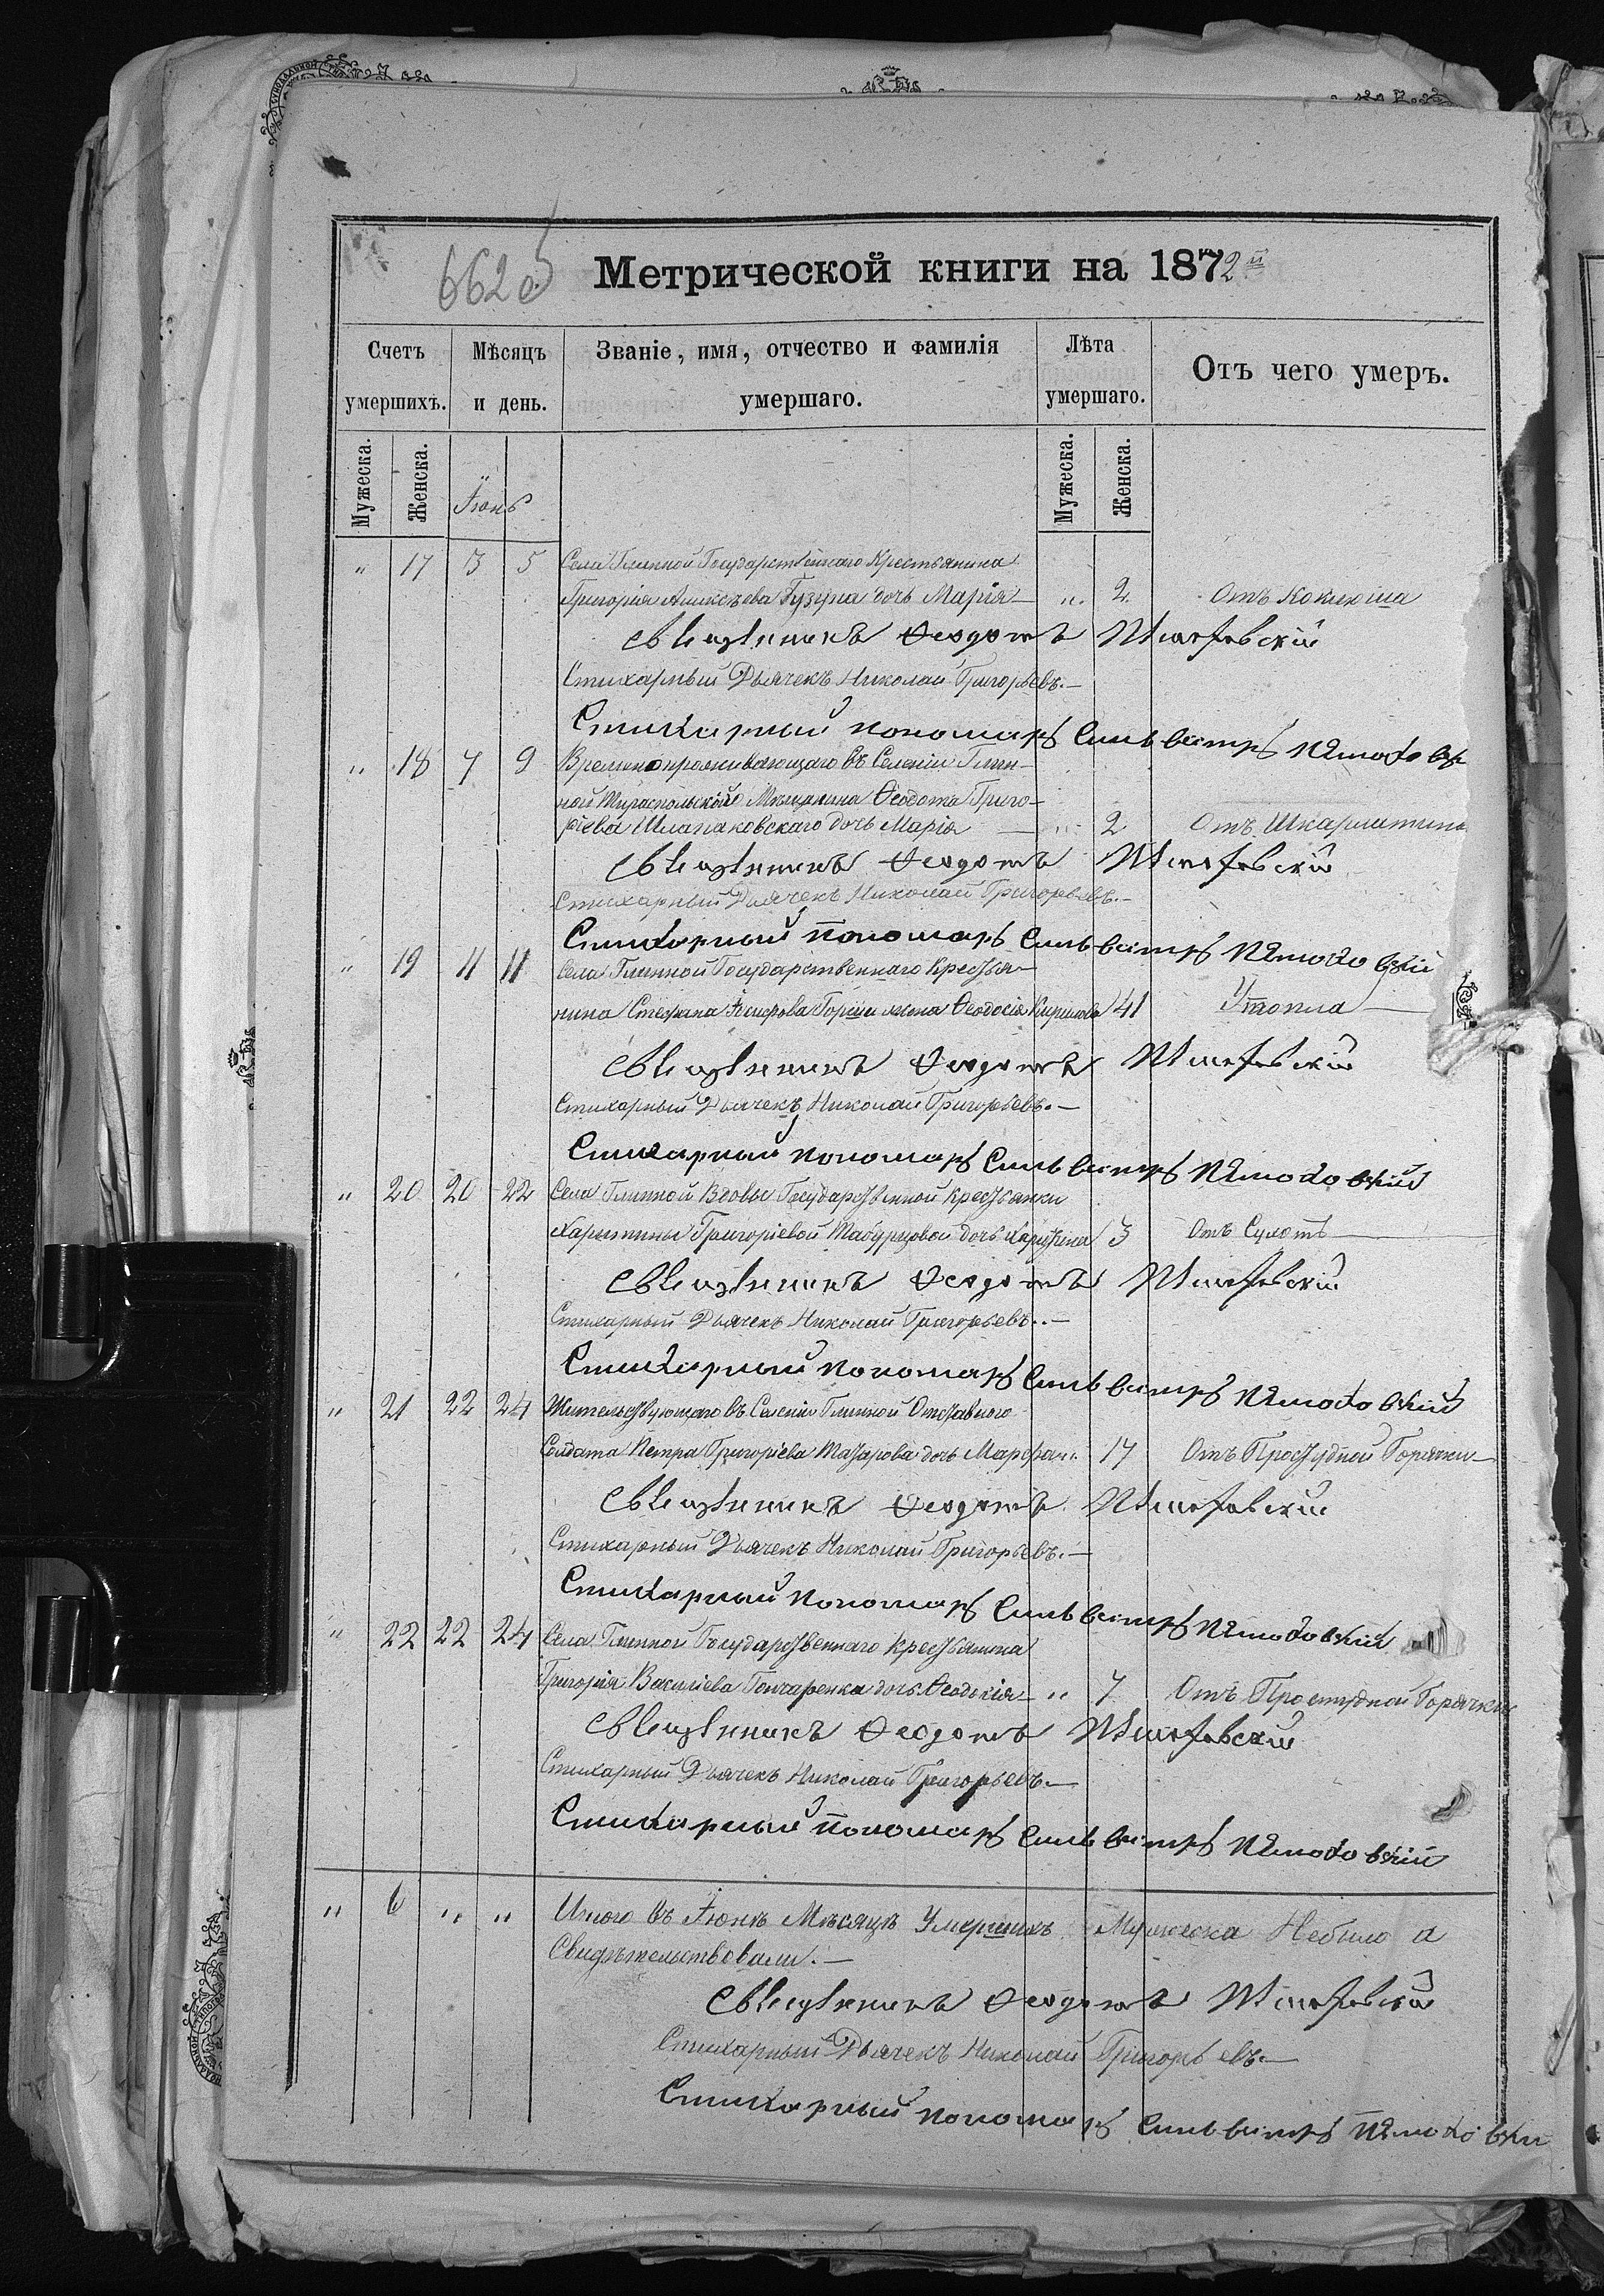 662 об
Метрической книги на 1872й
Счетъ умершихъ.
Мѣсяцъ и день.
Званіе, имя, отчество и фамилія умершаго.
Лѣта умершаго.
Отъ чего умеръ.
Мужеска.
Женска.
Іюнь
Мужеска.
Женска.
" 17 3 5 Села Глинной Государственнаго Крестьянина
Григорія Алексѣева Гузуна дочь Марія " 2 Отъ Коклюша
Священникъ Ѳеодотъ
Стихарный Дьячекъ Николай Григорьевъ.
Стихарный пономарь Сильвестръ
" 18 7 9 Временопроживающаго въ Селеніи Глин-
ной Тираспольскаго Мещанина Ѳеодота Григо-
ріева Шлапаковскаго дочь Марія " 2 Отъ Шкарлатины
Священникъ Ѳеодотъ
Стихарный Дьячекъ Николай Григорьевъ.
Стихарный пономарь Сильвестръ
" 19 11 11 Села Глинной Государственнаго Крестья-
нина Стефана жена Ѳеодосія Кирилова 41 Утопла
Священникъ Ѳеодотъ
Стихарный Дьячекъ Николай Григорьевъ.
Стихарный пономарь Сильвестръ
" 20 20 22 Села Глинной Вдовы Государственной Крестьянки
Харитины Григоріевой дочь 3 Отъ Сухотъ
Священникъ Ѳеодотъ
Стихарный Дьячекъ Николай Григорьевъ.
Стихарный пономарь Сильвестръ
" 21 22 24 Жительствующаго въ Селеніи Глинной Отставного
Солдата Петра Григоріева дочь Марфа " 17 Отъ Простудной Горячки
Священникъ Ѳеодотъ
Стихарный Дьячекъ Николай Григорьевъ.
Стихарный пономарь Сильвестръ
" 22 22 24 Села Глинной Государственнаго Крестьянина
Григорія Василіева Гончаренка дочь " 7 Отъ Простудной Горячки
Священникъ Ѳеодотъ
Стихарный Дьячекъ Николай Григорьевъ.
Стихарный пономарь Сильвестръ
" 6 " " Итого въ Іюнѣ Мѣсяцѣ Умершихъ Мужеска Небыло а
Свидѣтельствовали.
Священникъ Ѳеодотъ
Стихарный Дьячекъ Николай Григорьевъ.
Стихарный пономарь Сильвестръ